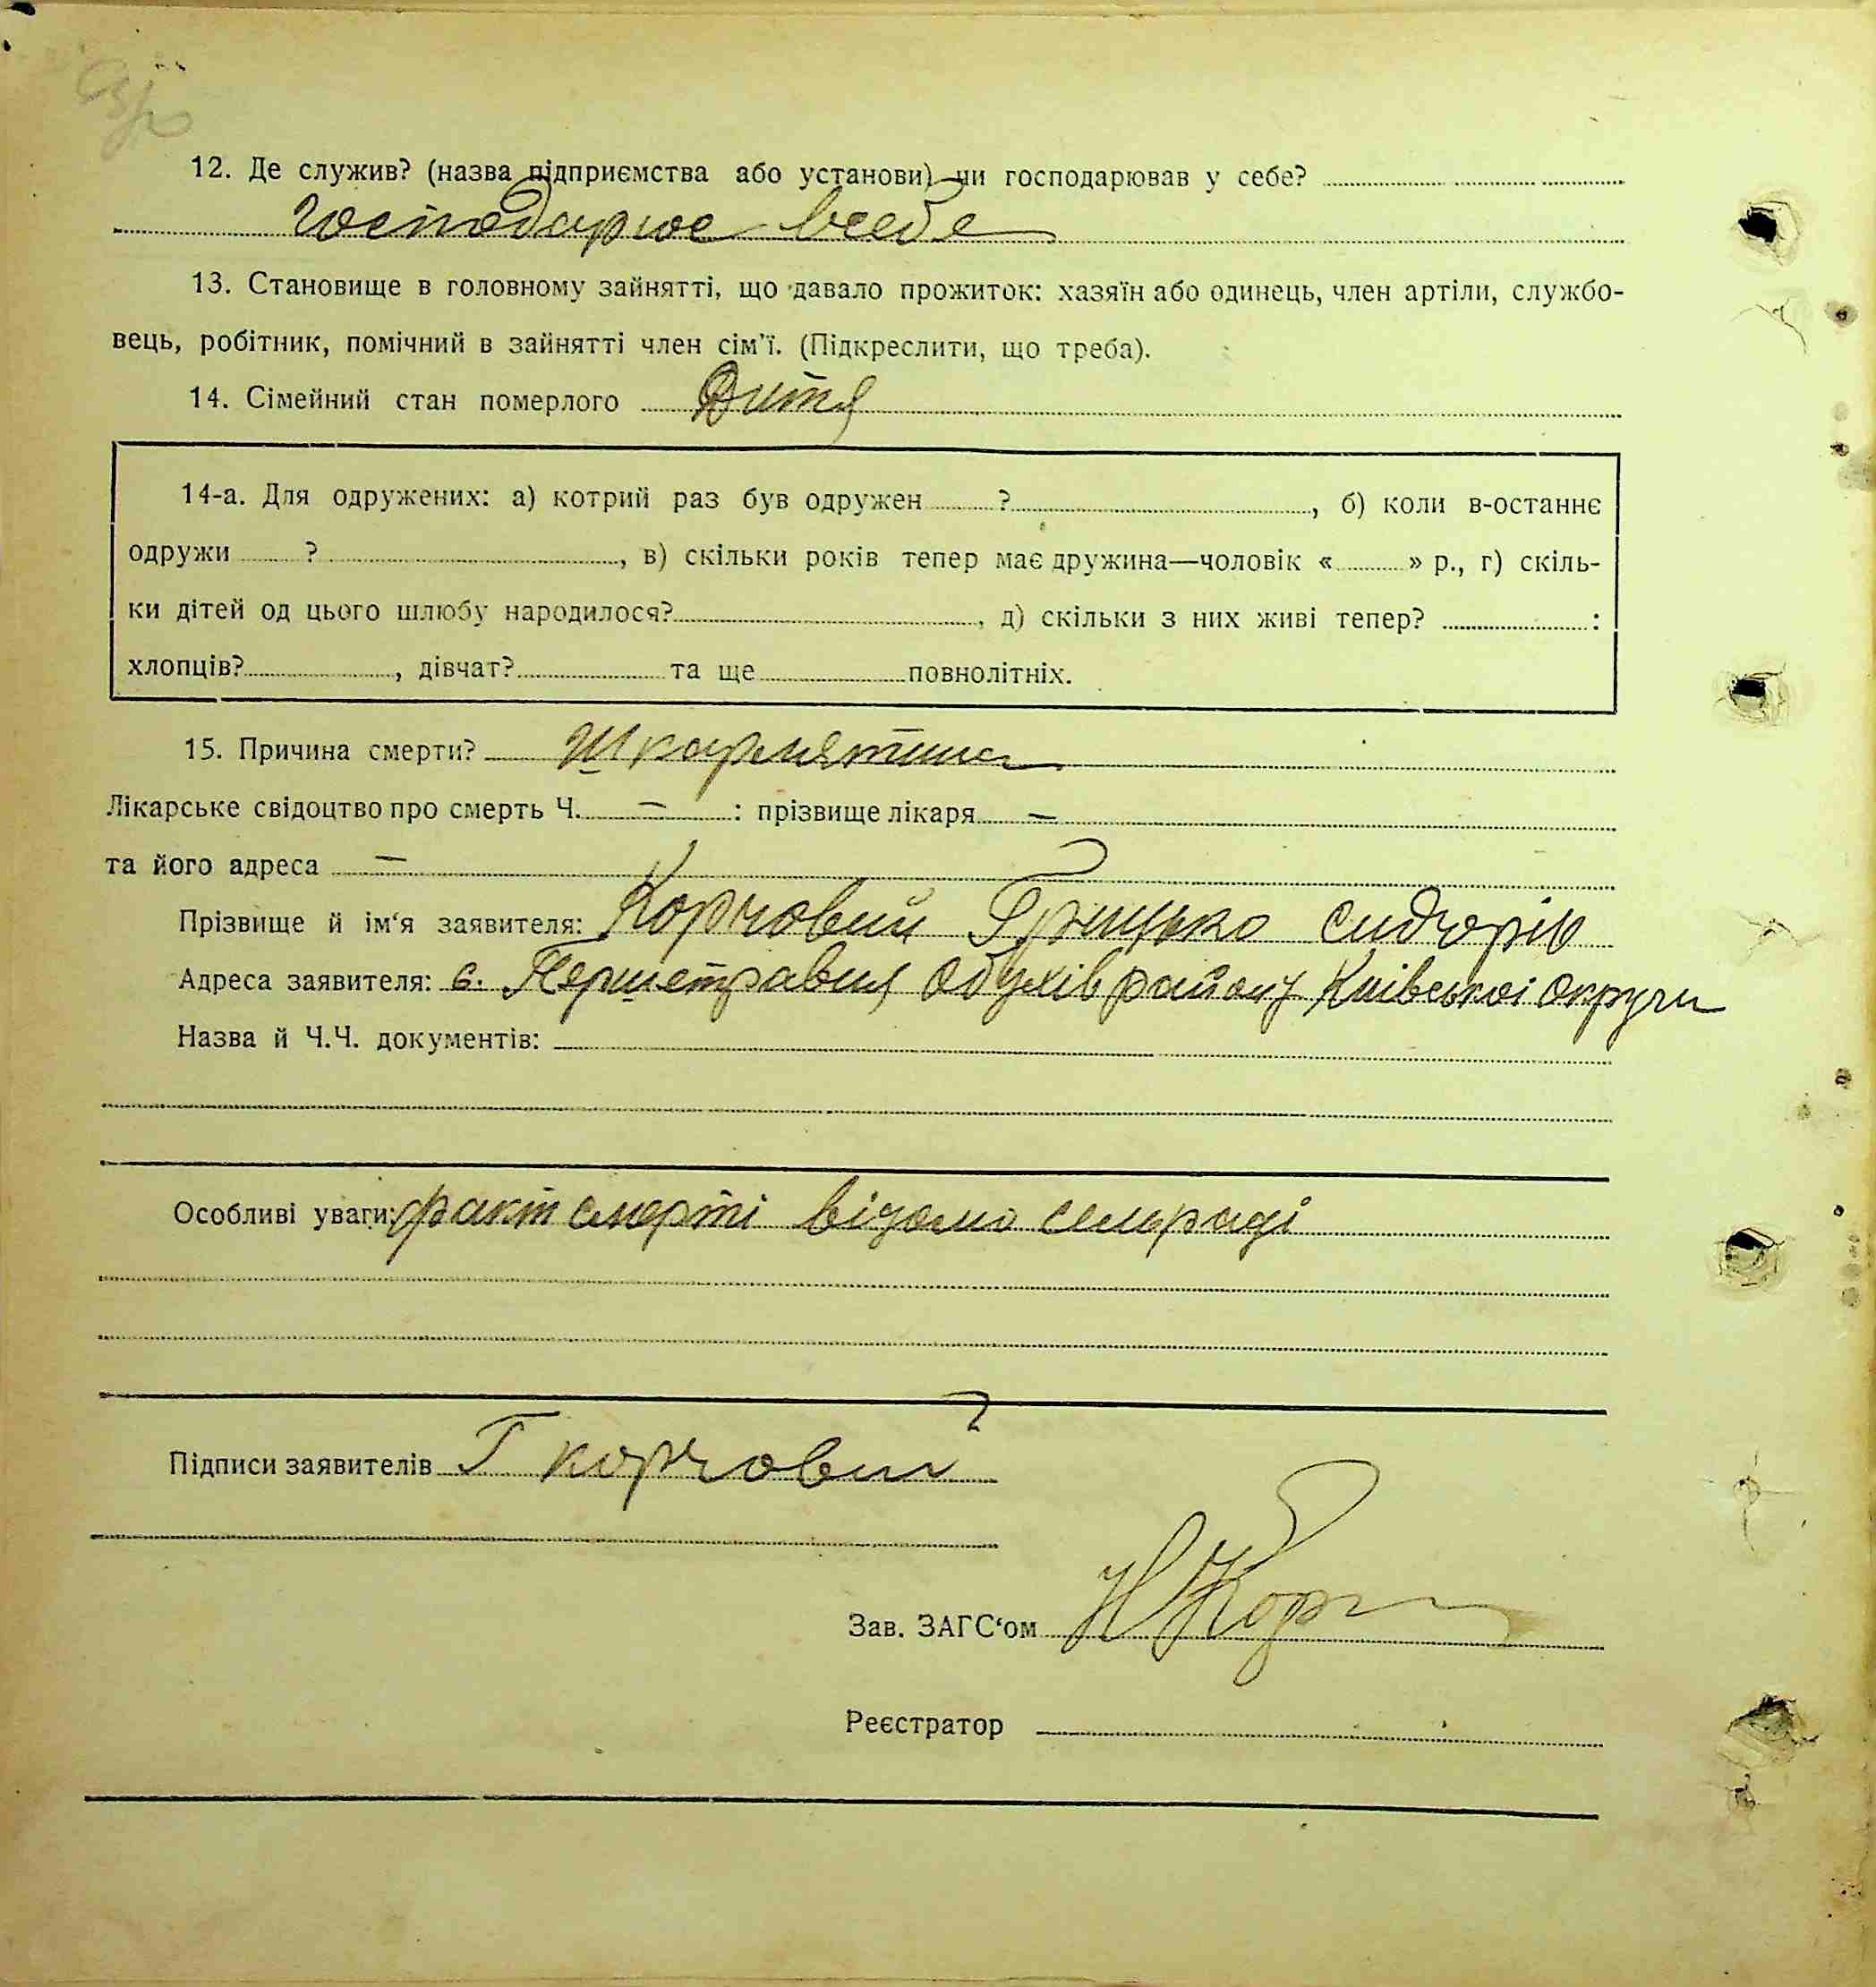 12. Де служив? (назва підприємства або установи) чи господарював у себе?
Господарює в себе
13. Становище в головному зайнятті, що давало прожиток: хазяїн або одинець, член артіли, службо-
вець, робітник, помічний в зайнятті член сім'ї. (Підкреслити, що треба).
14. Сімейний стан померлого Дитя
14-а. Для одружених: а) котрий раз був одружен ? , б) коли в-останнє
одружи ? , в) скільки років тепер має дружина—чоловік « » р., г) скіль-
ки дітей од цього шлюбу народилося? , д) скільки з них живі тепер? :
хлопців? , дівчат? та ще повнолітніх.
15. Причина смерти? Шкарлятина
Лікарське свідоцтво про смерть Ч. — : прізвище лікаря —
та його адреса —
Прізвище й ім'я заявителя: Корчовий Грицько Сидорів
Адреса заявителя: с. Першетравня Обухів району Київської округи
Назва й Ч.Ч. документів:
Особливі уваги: факт смерті відомо сельраді
Підписи заявителів Г Корчовий
Зав. ЗАГС'ом
Реєстратор